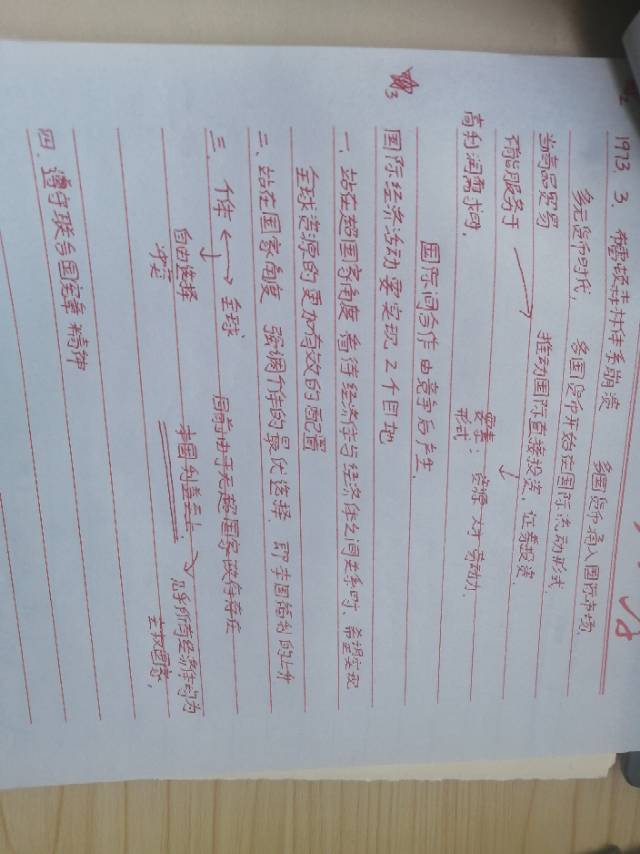 1973. 3. 布雷顿森林体系崩溃
多元货币时代， 多国货币开始在国际流动形式 多国货币涌入国际市场
当商品贸易 推动国际直接投资、证券投资
服务于
高利润需求时， 要素：资源 人才 劳动力
形式
国际间合作由竞争后产生
国际经济活动要实现2个目地
一、站在超国家角度看待经济体与经济体之间关系时，希望实现
全球资源的更加有效的配置
二、站在国家角度 强调个体的最优选择，即本国福利的上升
三、个体 ↔ 全球 目前由于无超国家政府存在
自由选择 本国利益至上 → 几乎所有经济体均为
冲突 主权国家，
四、遵守联合国宪章精神